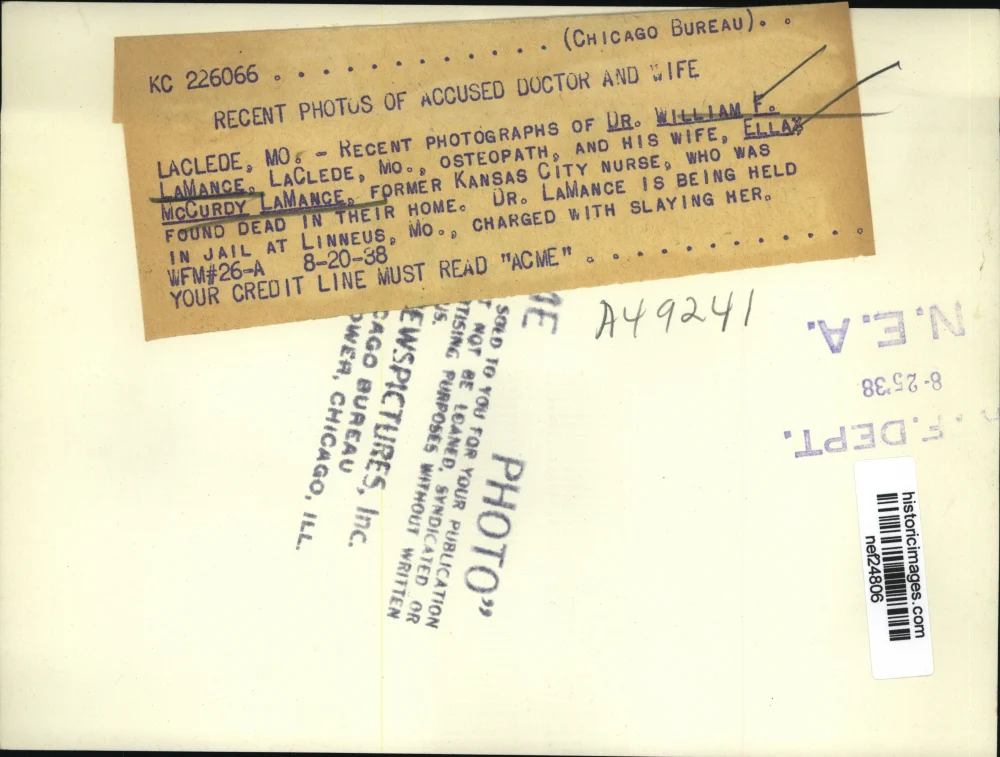 KC 226066 . . . . . . . . . . . . (CHICAGO BUREAU). .
RECENT PHOTOS OF ACCUSED DOCTOR AND WIFE
LACLEDE, MO. - RECENT PHOTOGRAPHS OF DR. WILLIAM F.
LAMANCE, LACLEDE, MO., OSTEOPATH, AND HIS WIFE, ELLA
MCCURDY LAMANCE, FORMER KANSAS CITY NURSE, WHO WAS
FOUND DEAD IN THEIR HOME. DR. LAMANCE IS BEING HELD
IN JAIL AT LINNEUS, MO., CHARGED WITH SLAYING HER.
WFM#26-A 8-20-38
YOUR CREDIT LINE MUST READ "ACME" . . . . . . . . . . . .
A49241
N.E.A.
8-25'38
F. DEPT.
ME
PHOTO"
SOLD TO YOU FOR YOUR PUBLICATION
T NOT BE LOANED, SYNDICATED OR
TISING PURPOSES WITHOUT WRITTEN
US.
EWSPICTURES, Inc.
CAGO BUREAU
OWER, CHICAGO, ILL.
historicimages.com
nef24806